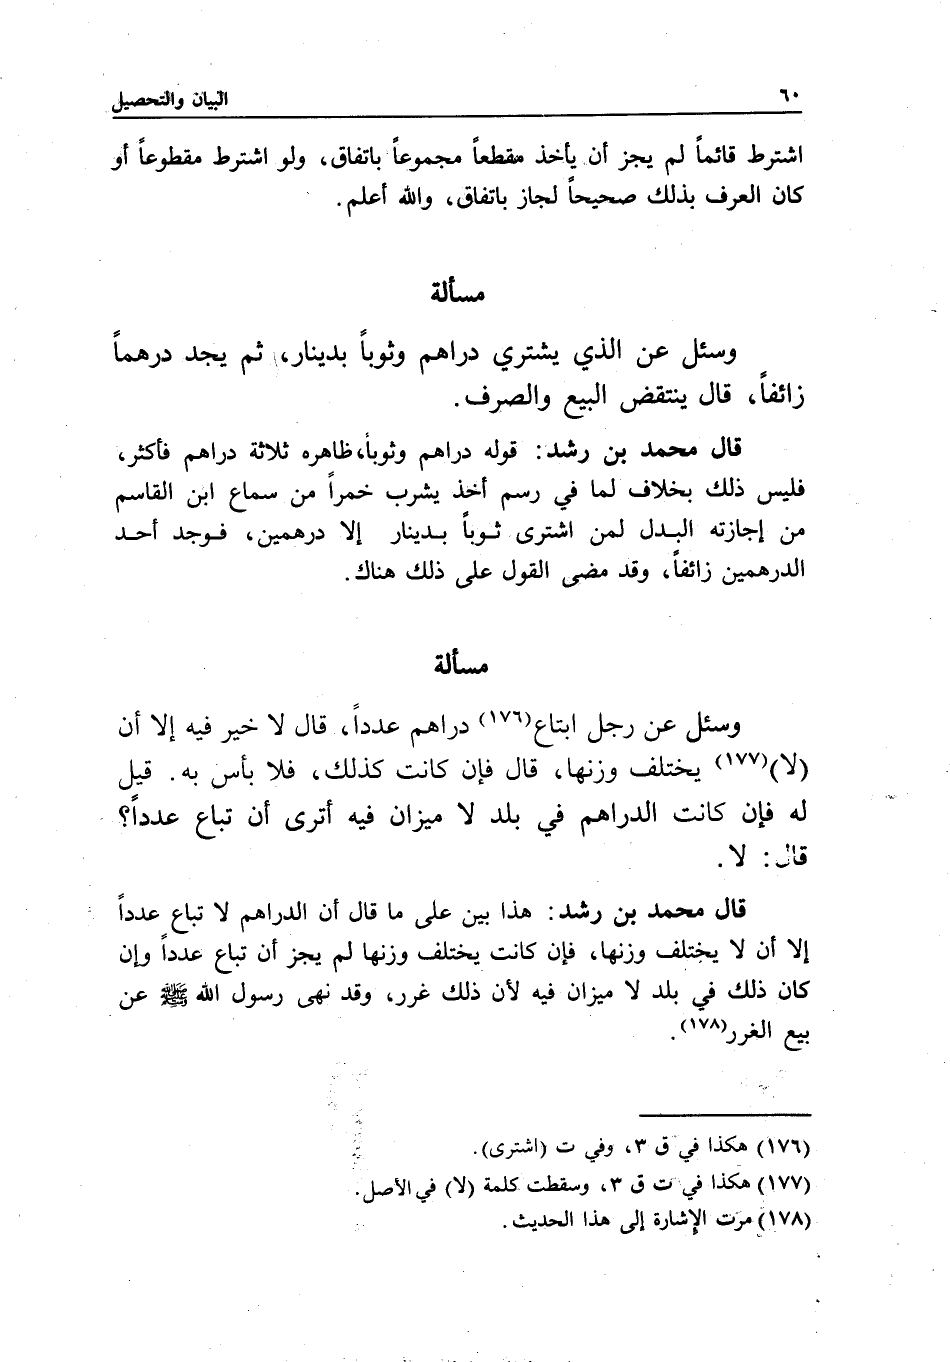 ٦٠ البيان والتحصيل
اشترط قائماً لم يجز أن يأخذ مقطعاً مجموعاً باتفاق، ولو اشترط مقطوعاً أو
كان العرف بذلك صحيحاً لجاز باتفاق، والله أعلم.
مسألة
وسئل عن الذي يشتري دراهم وثوباً بدينار، ثم يجد درهماً
زائفاً، قال ينتقض البيع والصرف.
قال محمد بن رشد: قوله دراهم وثوباً، ظاهره ثلاثة دراهم فأكثر،
فليس ذلك بخلاف لما في رسم أخذ يشرب خمراً من سماع ابن القاسم
من إجازته البدل لمن اشترى ثوباً بدينار إلا درهمين، فوجد أحد
الدرهمين زائفاً، وقد مضى القول على ذلك هناك.
مسألة
وسئل عن رجل ابتاع(١٧٦) دراهم عدداً، قال لا خير فيه إلا أن
(لا)(١٧٧) يختلف وزنها، قال فإن كانت كذلك، فلا بأس به. قيل
له فإن كانت الدراهم في بلد لا ميزان فيه أترى أن تباع عدداً؟
قال: لا.
قال محمد بن رشد: هذا بين على ما قال أن الدراهم لا تباع عدداً
إلا أن لا يختلف وزنها، فإن كانت يختلف وزنها لم يجز أن تباع عدداً وإن
كان ذلك في بلد لا ميزان فيه لأن ذلك غرر، وقد نهى رسول الله ﷺ عن
بيع الغرر(١٧٨).
(١٧٦) هكذا في ق ٣، وفي ت (اشترى).
(١٧٧) هكذا في ت ق ٣، وسقطت كلمة (لا) في الأصل.
(١٧٨) مرت الإشارة إلى هذا الحديث.